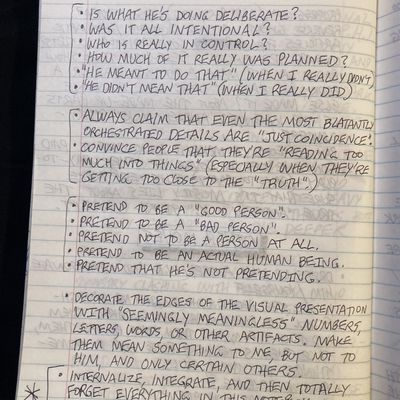 • IS WHAT HE'S DOING DELIBERATE?
• WAS IT ALL INTENTIONAL?
• WHO IS REALLY IN CONTROL?
• HOW MUCH OF IT REALLY WAS PLANNED?
• "HE MEANT TO DO THAT" (WHEN I REALLY DIDN'T)
• "HE DIDN'T MEAN THAT" (WHEN I REALLY DID)
• ALWAYS CLAIM THAT EVEN THE MOST BLATANTLY
ORCHESTRATED DETAILS ARE "JUST COINCIDENCE".
• CONVINCE PEOPLE THAT THEY'RE "READING TOO
MUCH INTO THINGS". (ESPECIALLY WHEN THEY'RE
GETTING TOO CLOSE TO THE "TRUTH".)
• PRETEND TO BE A "GOOD PERSON".
• PRETEND TO BE A "BAD PERSON".
• PRETEND NOT TO BE A PERSON AT ALL.
• PRETEND TO BE AN ACTUAL HUMAN BEING.
• PRETEND THAT HE'S NOT PRETENDING.
• DECORATE THE EDGES OF THE VISUAL PRESENTATION
WITH "SEEMINGLY MEANINGLESS" NUMBERS,
LETTERS, WORDS, OR OTHER ARTIFACTS. MAKE
THEM MEAN SOMETHING TO ME, BUT NOT TO
HIM, AND ONLY CERTAIN OTHERS.
* • INTERNALIZE, INTEGRATE, AND THEN TOTALLY
FORGET EVERYTHING IN THIS